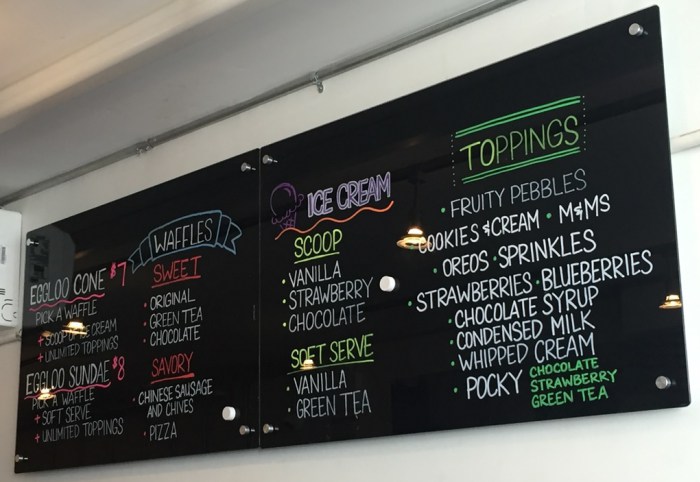 EGGLOO CONE $7
PICK A WAFFLE
+ SCOOP OF ICE CREAM
+ UNLIMITED TOPPINGS
EGGLOO SUNDAE $8
PICK A WAFFLE
+ SOFT SERVE
+ UNLIMITED TOPPINGS
WAFFLES
SWEET
• ORIGINAL
• GREEN TEA
• CHOCOLATE
SAVORY
• CHINESE SAUSAGE
AND CHIVES
• PIZZA
ICE CREAM
SCOOP
• VANILLA
• STRAWBERRY
• CHOCOLATE
SOFT SERVE
• VANILLA
• GREEN TEA
TOPPINGS
• FRUITY PEBBLES
COOKIES & CREAM • M&MS
OREOS • SPRINKLES
• STRAWBERRIES • BLUEBERRIES
• CHOCOLATE SYRUP
• CONDENSED MILK
• WHIPPED CREAM
• POCKY CHOCOLATE
STRAWBERRY
GREEN TEA